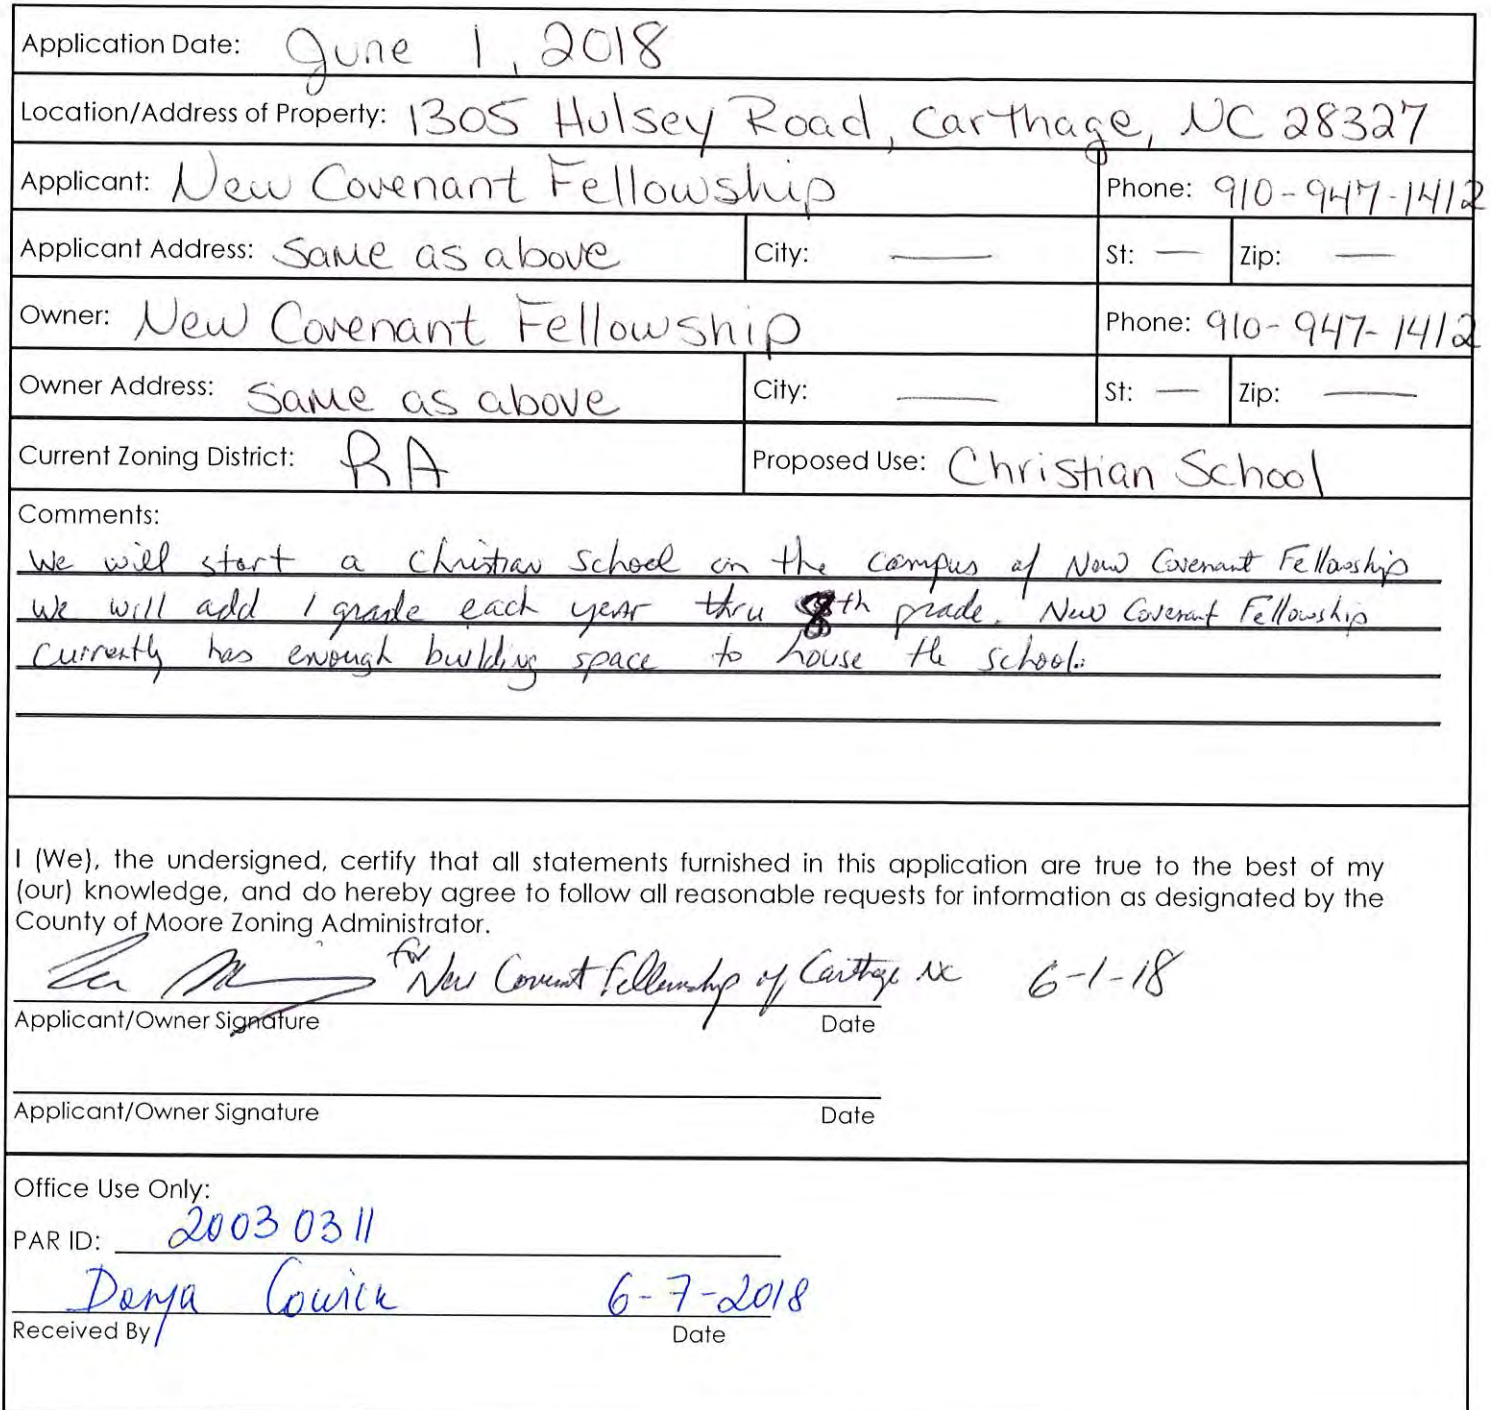 Application Date: June 1, 2018
Location/Address of Property: 1305 Hulsey Road, Carthage, NC 28327
Applicant: New Covenant Fellowship Phone: 910-947-1412
Applicant Address: Same as above City: — St: — Zip: —
Owner: New Covenant Fellowship Phone: 910-947-1412
Owner Address: Same as above City: — St: — Zip: —
Current Zoning District: RA Proposed Use: Christian School
Comments:
We will start a Christian School on the campus of New Covenant Fellowship
We will add 1 grade each year thru 8th grade. New Covenant Fellowship
currently has enough building space to house the school.
I (We), the undersigned, certify that all statements furnished in this application are true to the best of my
(our) knowledge, and do hereby agree to follow all reasonable requests for information as designated by the
County of Moore Zoning Administrator.
for New Covenant Fellowship of Carthage NC 6-1-18
Applicant/Owner Signature Date
Applicant/Owner Signature Date
Office Use Only:
PAR ID: 20030311
6-7-2018
Received By Date